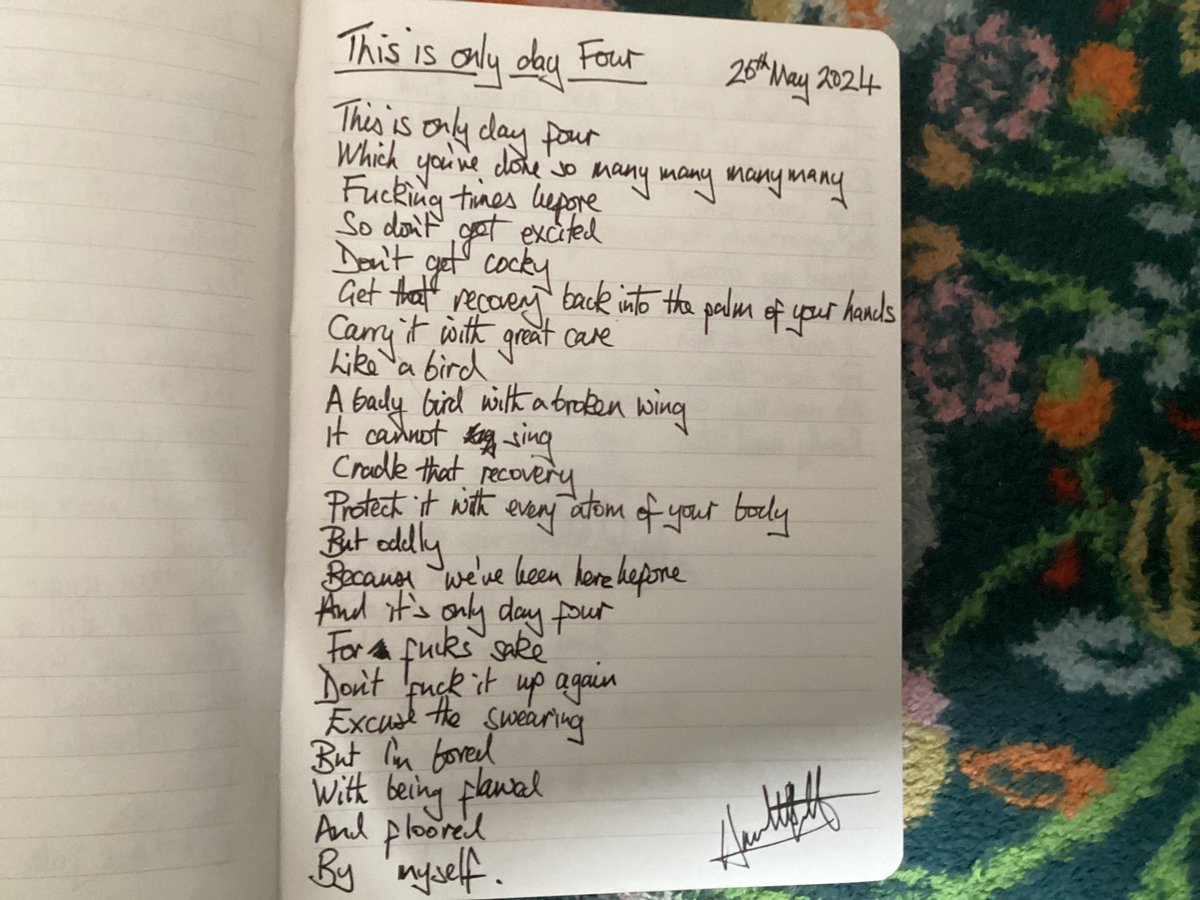 This is only day Four
26th May 2024
This is only day four
Which you've done so many many many many
Fucking times before
So don't get excited
Don't get cocky
Get that recovery back into the palm of your hands
Carry it with great care
Like a bird
A baby bird with a broken wing
It cannot sing
Cradle that recovery
Protect it with every atom of your body
But oddly
Because we've been here before
And it's only day four
For fucks sake
Don't fuck it up again
Excuse the swearing
But I'm bored
With being flawed
And floored
By myself.